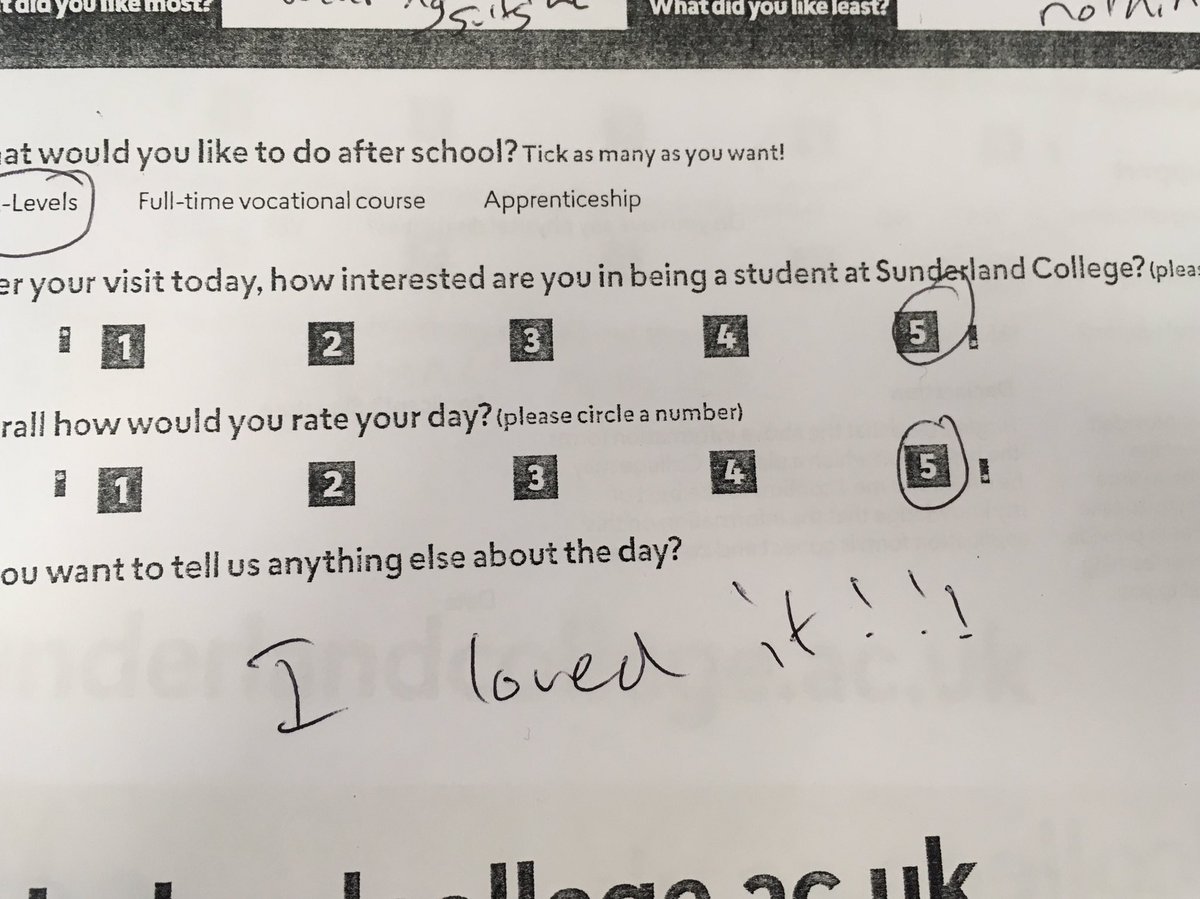 did you like most? suits me What did you like least?
at would you like to do after school? Tick as many as you want!
-Levels Full-time vocational course Apprenticeship
er your visit today, how interested are you in being a student at Sunderland College? (pleas
1 2 3 4 5
rall how would you rate your day? (please circle a number)
1 2 3 4 5
ou want to tell us anything else about the day?
I loved it!!!
ollege.ac.uk